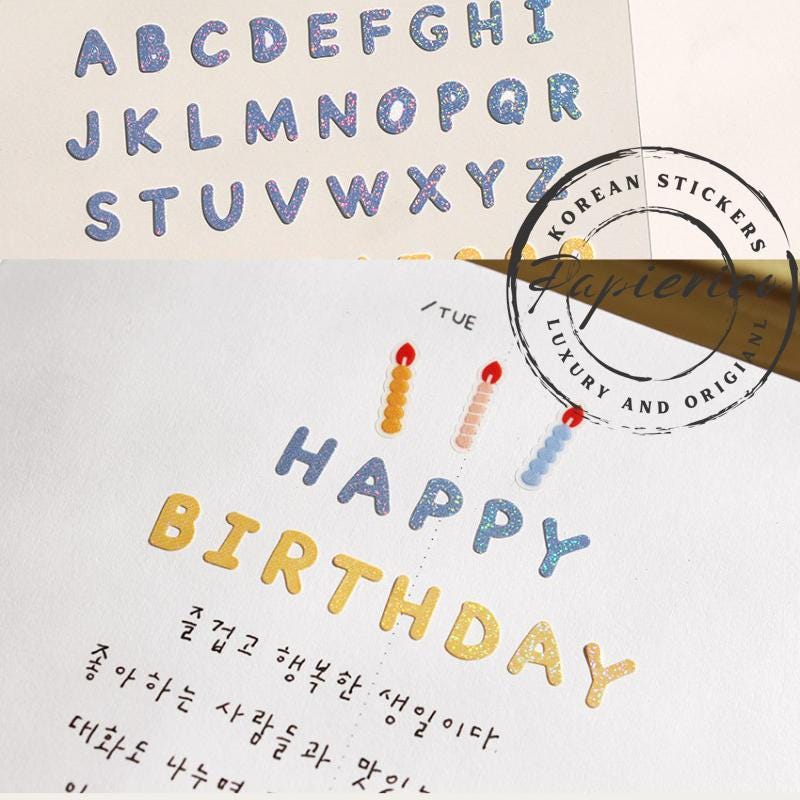 A B C D E F G H I
J K L M N O P Q R
S T U V W X Y Z
KOREAN STICKERS
Papierico
LUXURY AND ORIGIANL
/TUE
HAPPY
BIRTHDAY
즐겁고 행복한 생일이다.
좋아하는 사람들과
대화도 나누며